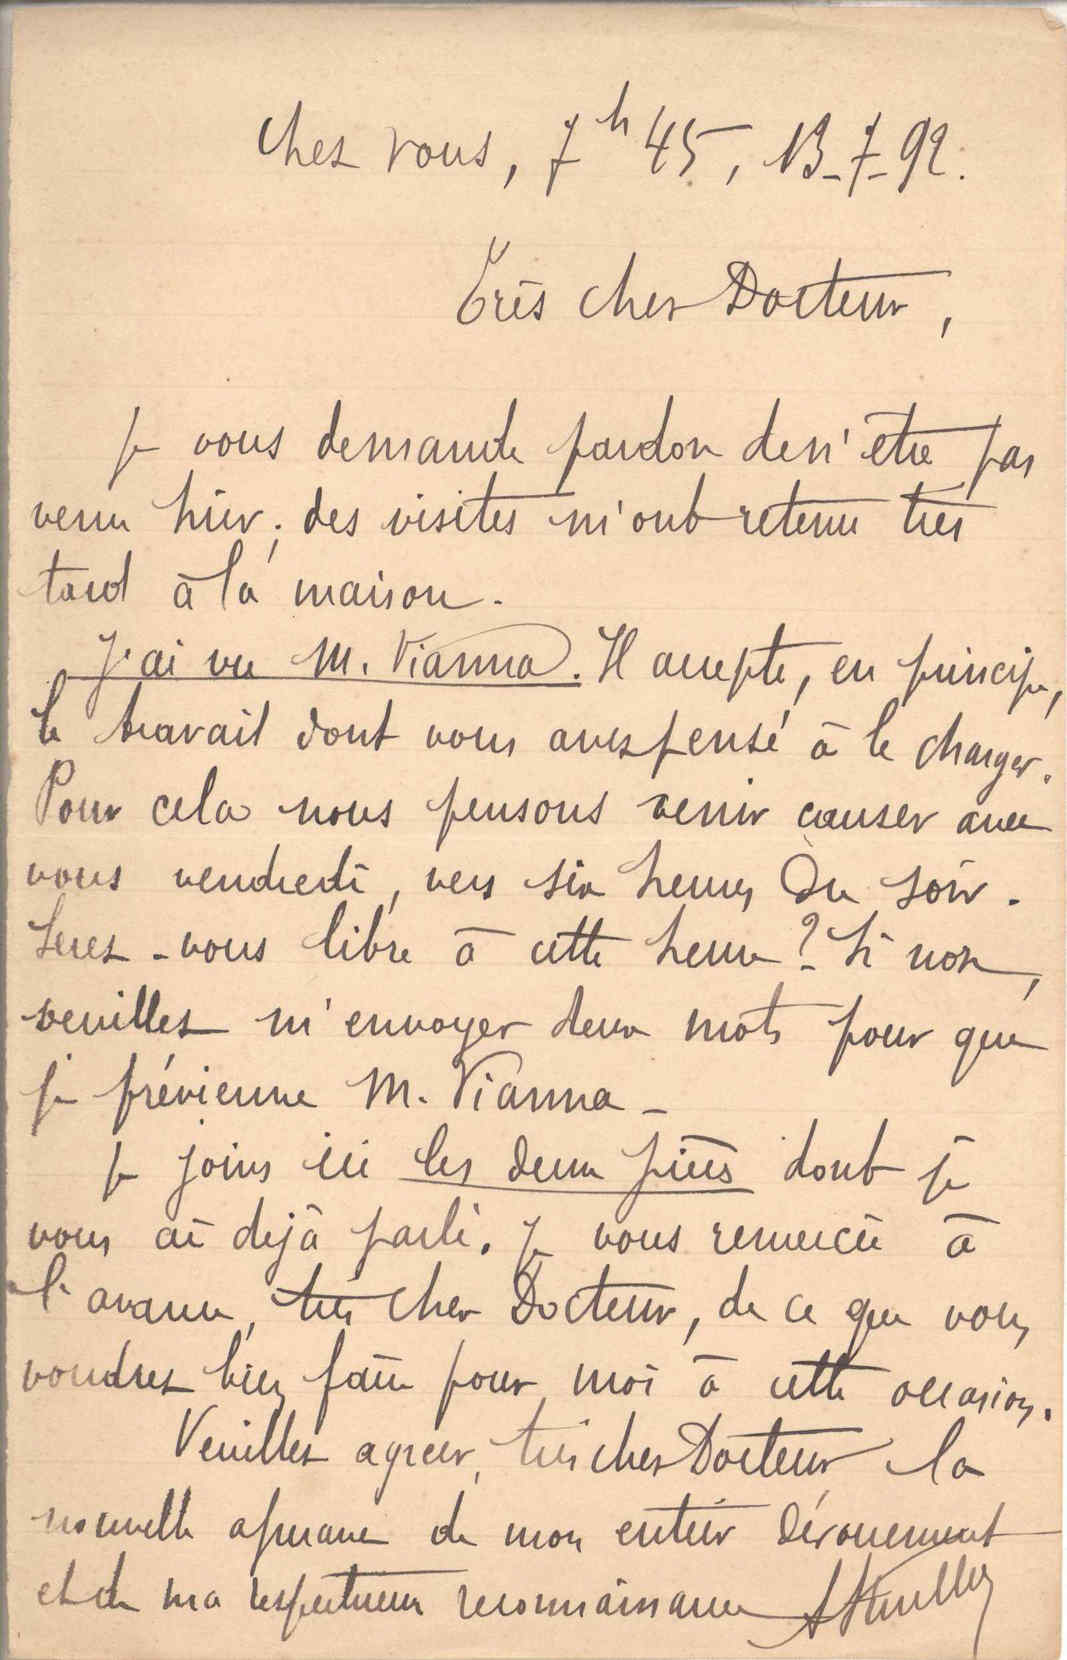 Chez vous, 7h 45, 13-7-92.
Très cher Docteur,
Je vous demande pardon de n'être pas
venu hier; des visites m'ont retenu très
tard à la maison.
J'ai vu M. Vianna. Il accepte, en principe,
le travail dont vous avez pensé à le charger.
Pour cela nous pensons venir causer avec
vous vendredi, vers six heures du soir.
Serez-vous libre à cette heure? Si non,
veuillez m'envoyer deux mots pour que
je prévienne M. Vianna -
Je joins ici les deux pièces dont je
vous ai déjà parlé. Je vous remercie à
l'avance, très cher Docteur, de ce que vous
voudrez bien faire pour moi à cette occasion.
Veuillez agréer, très cher Docteur la
nouvelle assurance de mon entier dévouement
et de ma respectueuse reconnaissance